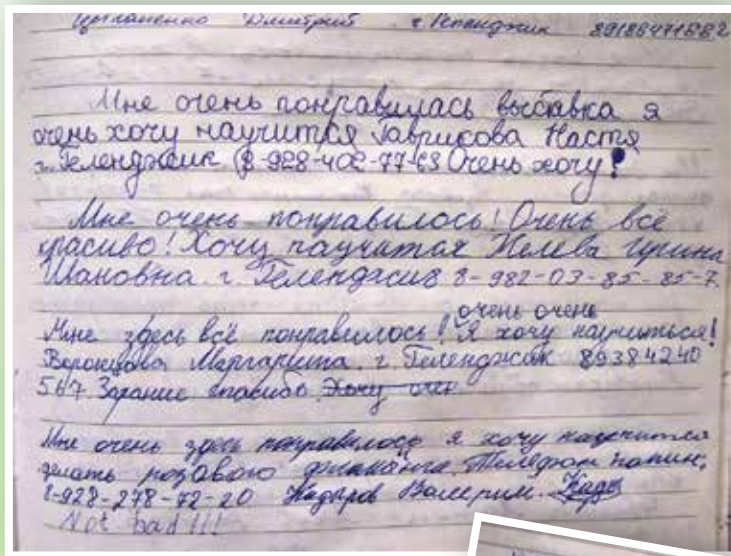 Цыганенко Дмитрий г. Геленджик 89186471662
Мне очень понравилась выставка я
очень хочу научится Гаврикова Настя
г. Геленджик 8-928-402-77-63 Очень хочу!
Мне очень понравилось! Очень всё
красиво! Хочу научится Ирина
г. Геленджик 8-982-03-85-85-7
очень очень
Мне здесь всё понравилось! Я хочу научиться!
Воронцова Маргарита. г. Геленджик 89384240
567 Зарание спасибо. Хочу очен
Мне очень здесь понравилось я хочу научится
делать розового Телефон папин,
8-928-278-72-20 Кадыров Валерим. Кады
Not bad!!!